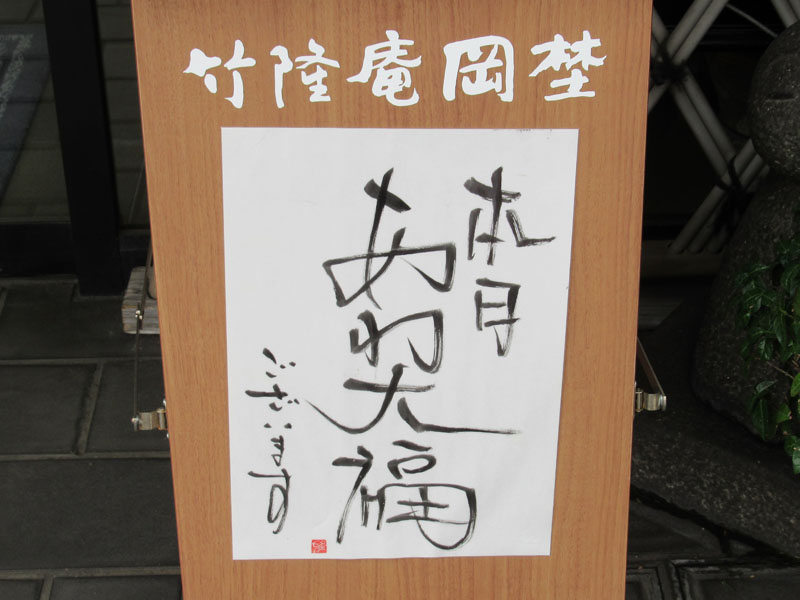 竹隆庵岡埜
本日
あわ大福
ございます